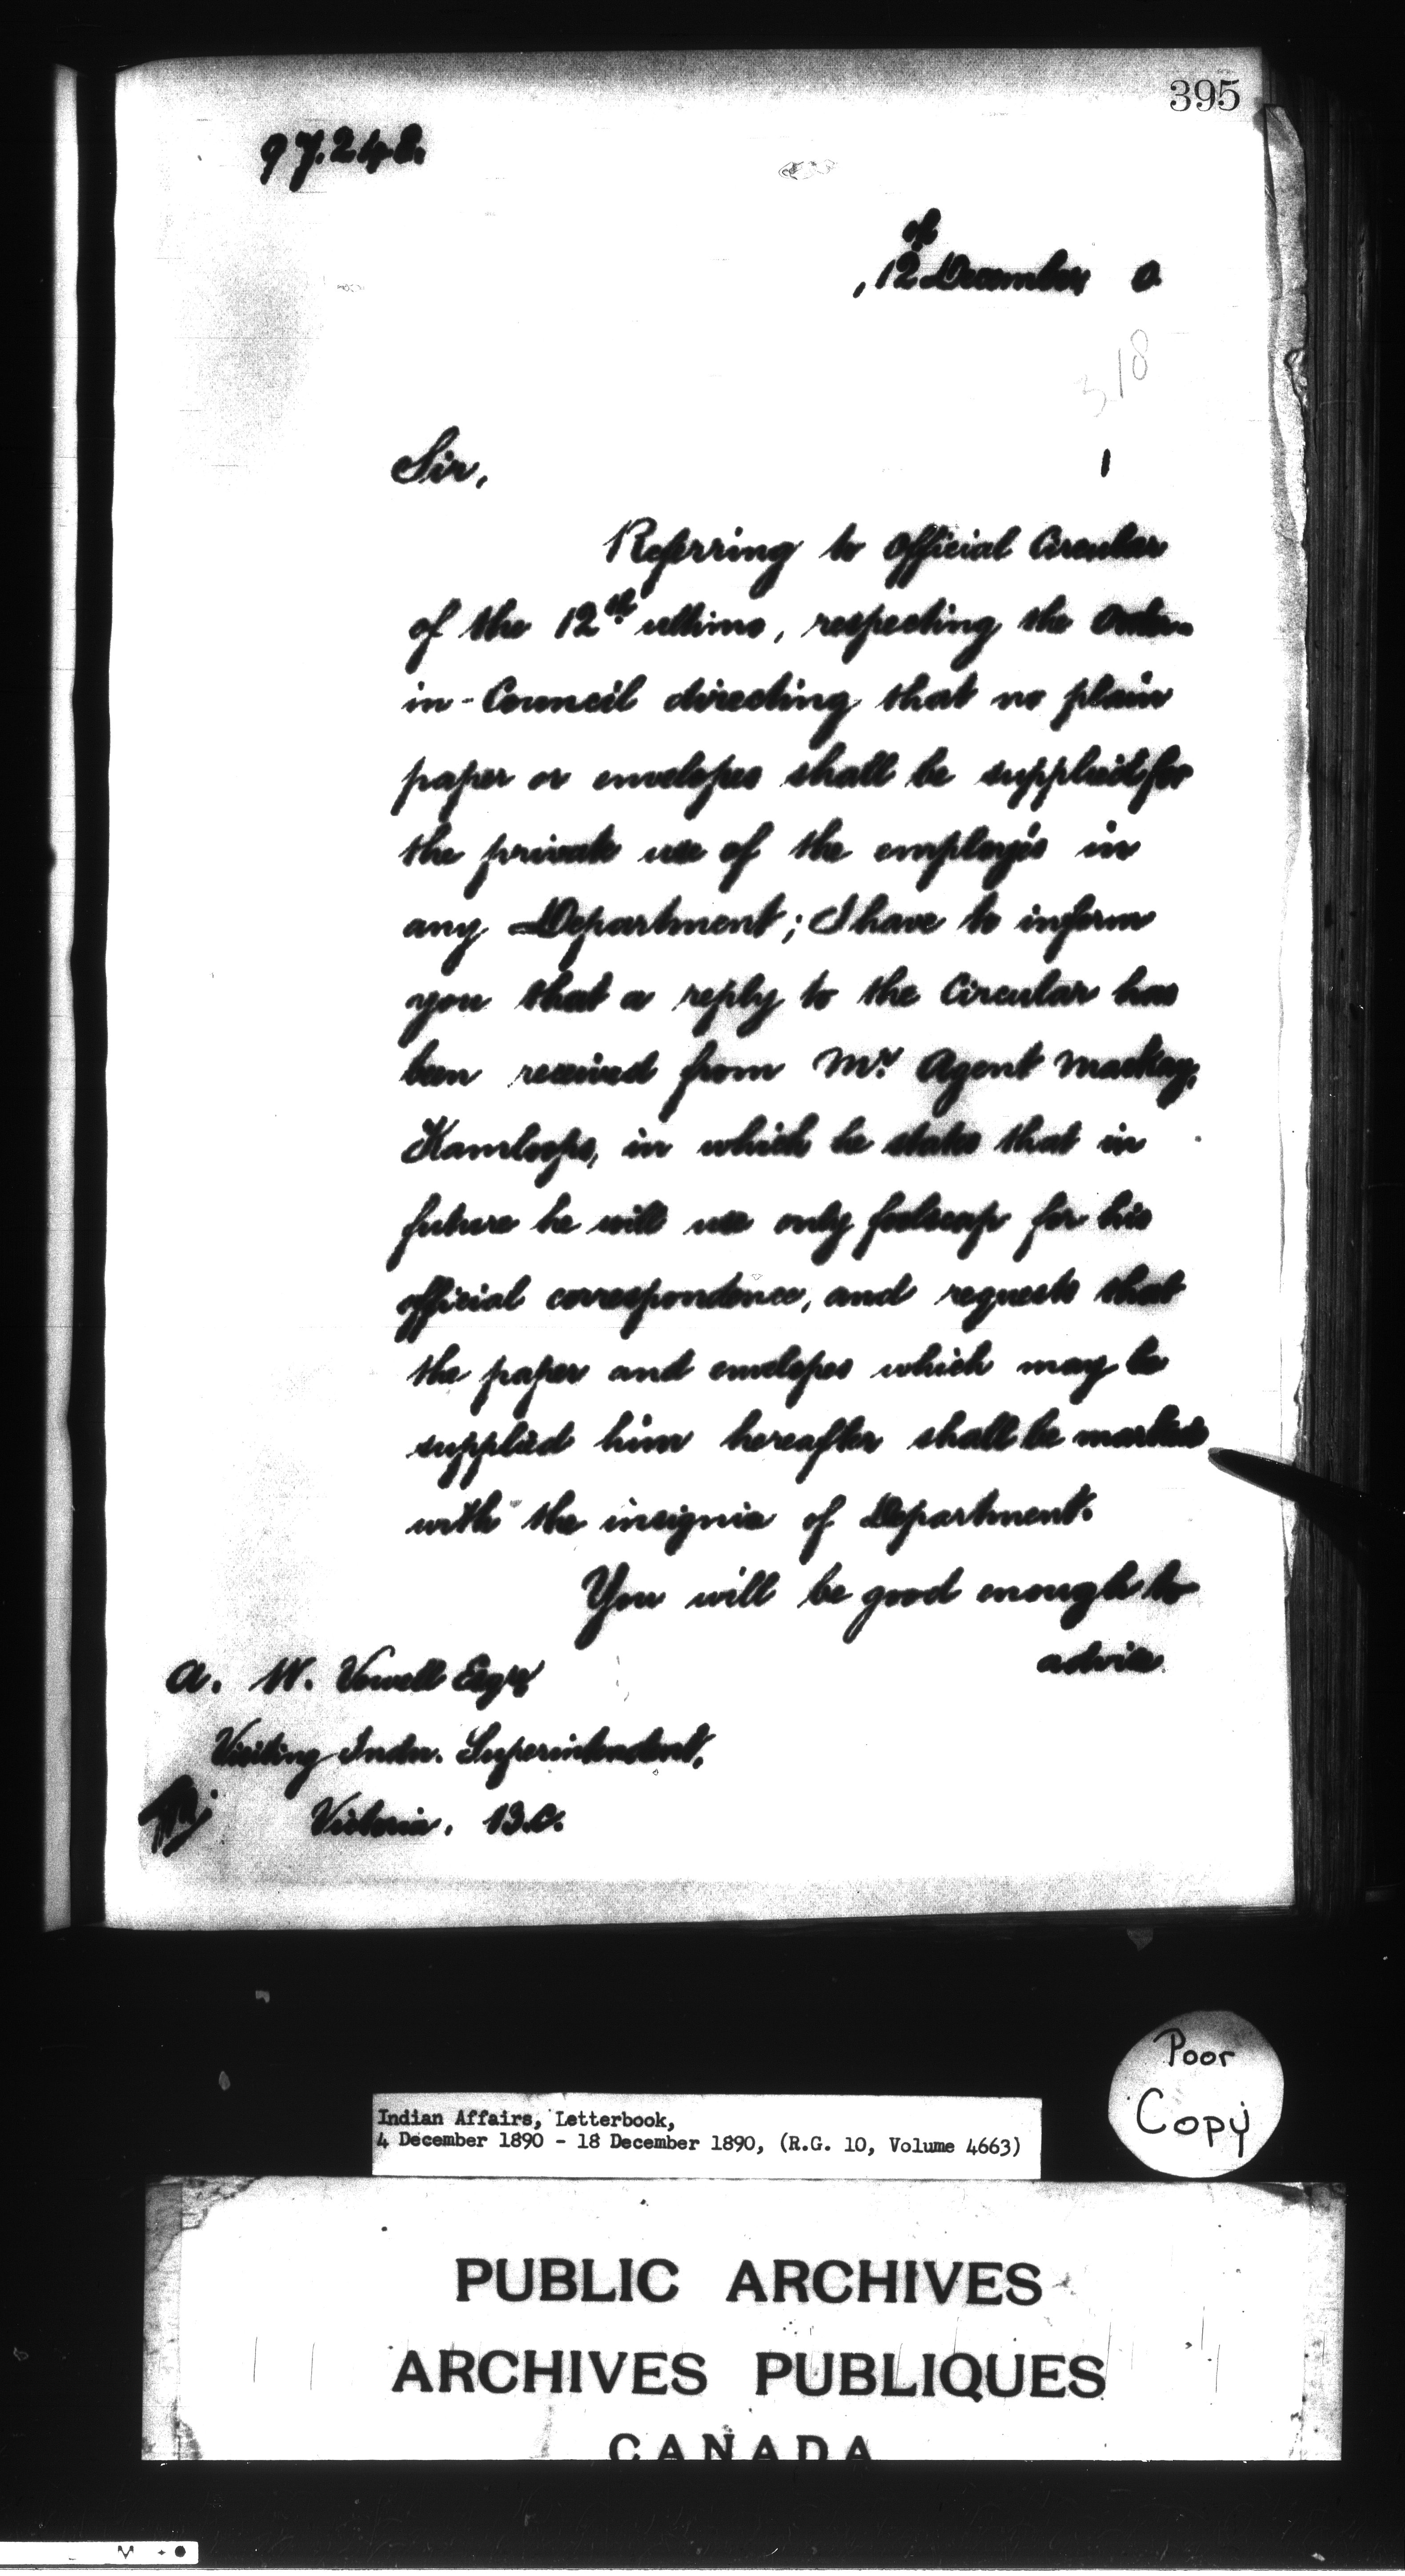 395
97.248.
12th December 0
318
Sir,
Referring to Official Circular
of the 12th ultimo, respecting the Order-
in-Council directing that no plain
paper or envelopes shall be supplied for
the private use of the employés in
any Department; I have to inform
you that a reply to the Circular has
been received from Mr. Agent Mackay,
Kamloops, in which he states that in
future he will use only foolscap for his
official correspondence, and requests that
the paper and envelopes which may be
supplied him hereafter shall be marked
with the insignia of Department.
You will be good enough to
advise
A. W. Vowell Esqre
Visiting Indn. Superintendent,
Victoria, B.C.
Poor
Copy
Indian Affairs, Letterbook,
4 December 1890 - 18 December 1890, (R.G. 10, Volume 4663)
PUBLIC ARCHIVES
ARCHIVES PUBLIQUES
CANADA